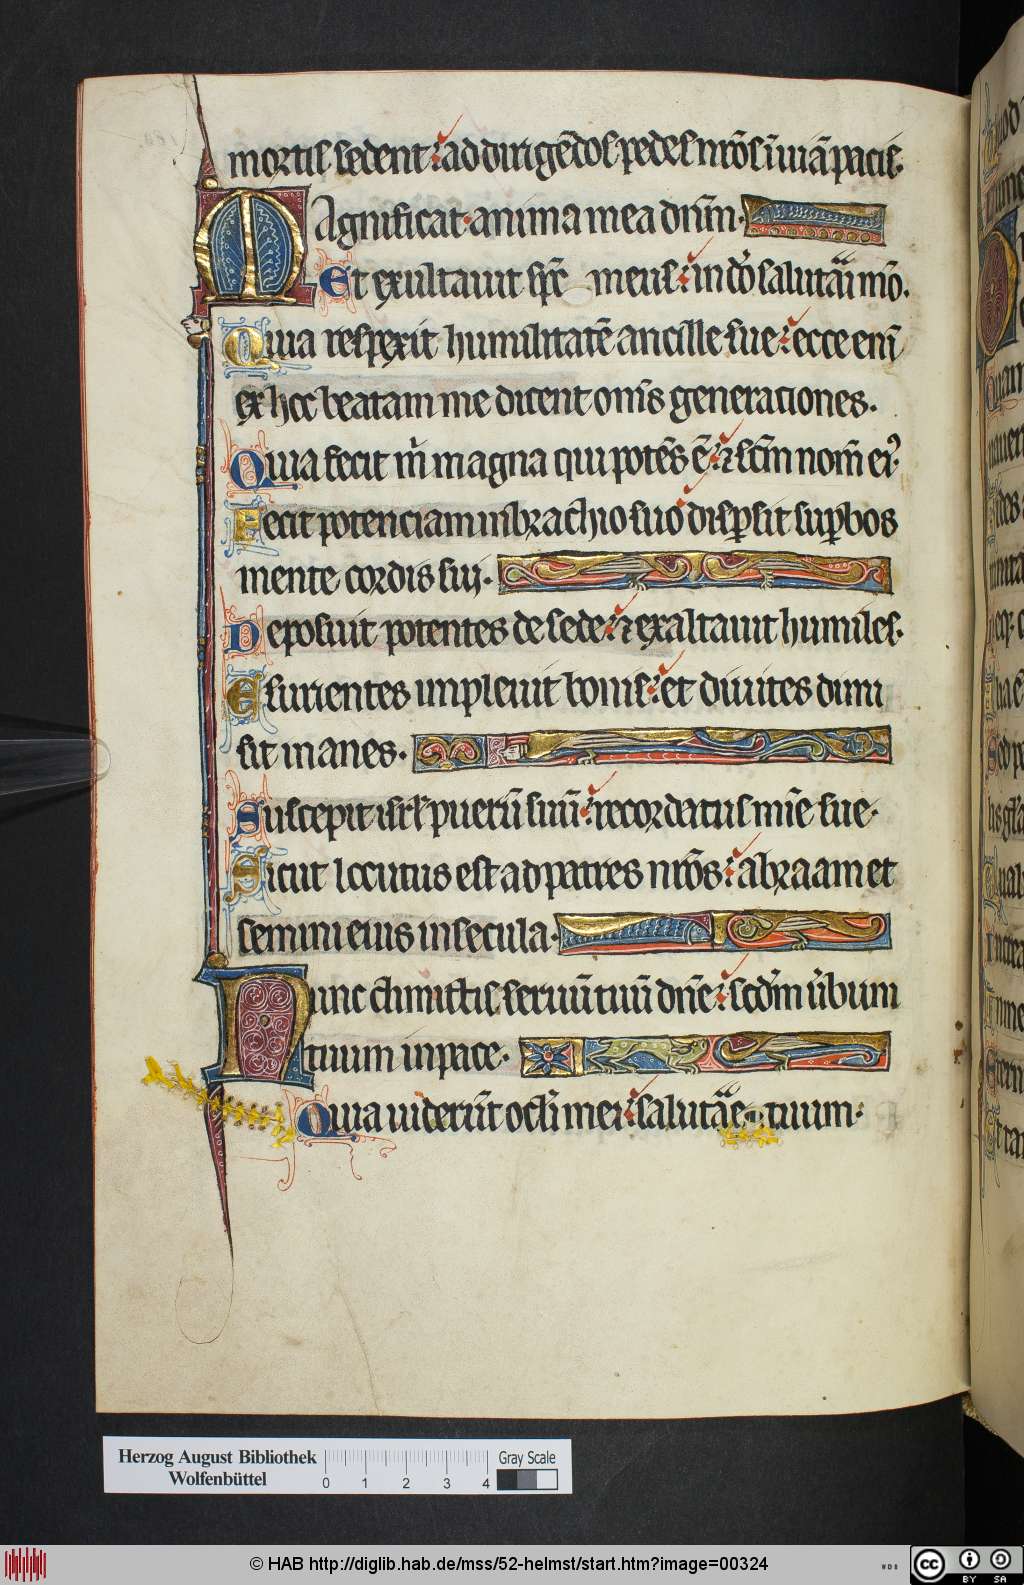 mortis sedent: ad dirigēdos pedes nr̄os ī uiā pacis.
MAgnificat anima mea dn̄m.
Et exultauit sp̄c meus: in dō salutāi mō.
Quia respexit humilitatē ancille sue: ecce enī
ex hoc beatam me dicent om̄s generaciones.
Quia fecit m̄ magna qui potēs ē: ⁊ sc̄m nom̄ ei⁹.
Fecit potenciam in brachio suo disp̱sit sup̱bos
mente cordis sui.
Deposuit potentes de sede: ⁊ exaltauit humiles.
Esurientes impleuit bonis: et diuites dimi
sit inanes.
Suscepit isrl̄ puerū suū: recordatus mīe sue.
Sicut locutus est ad patres nr̄os: abraam et
semini eius in secula.
Nunc dimittis seruū tuū dn̄e: scd̄m u̇bum
tuum in pace.
Quia uiderūt oculi mei: salutāe tuum.
Herzog August Bibliothek
Wolfenbüttel
0 1 2 3 4
Gray Scale
© HAB http://diglib.hab.de/mss/52-helmst/start.htm?image=00324
WDB
cc BY SA